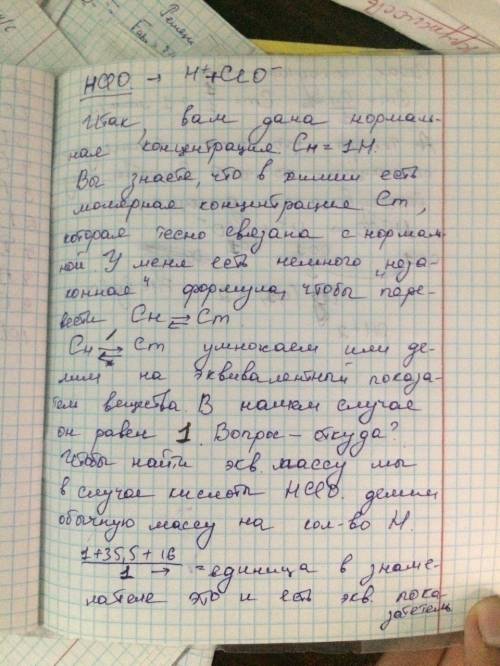 HClO → H⁺ + ClO⁻
Итак, вам дана нормаль-
ная концентрация Cн = 1Н.
Вы знаете, что в химии есть
молярная концентрация Cm,
которая тесно связана с нормаль-
ной. У меня есть немного "неза-
конная" формула, чтобы пере-
вести Cн ⇄ Cm
Cн ⇄ Cm умножаем или де-
лим на эквивалентный показа-
тель вещества. В нашем случае
он равен 1. Вопрос – откуда?
Чтобы найти экв. массу мы
в случае кислоты HClO делим
обычную массу на кол-во H.
1+35,5+16
1 → = единица в знаме-
нателе это и есть экв. пока-
затетель